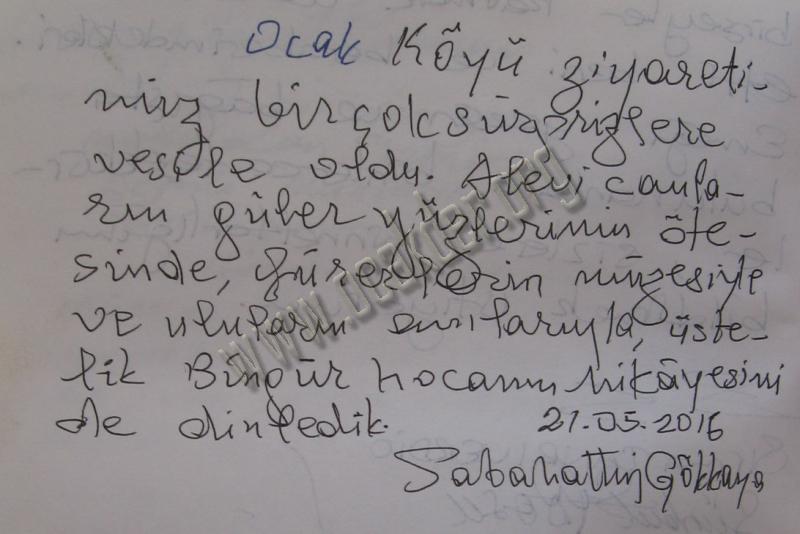 Ocak Köyü ziyareti-
miz birçok sürprizlere
vesile oldu. Alevi canla-
rın güler yüzlerinin öte-
sinde, müzesiyle
ve uluların anılarıyla, üste-
lik Bingür hocamın hikâyesini
de dinledik. 21.05.2016
Sabahattin Gökkaya
www.ocakter.org